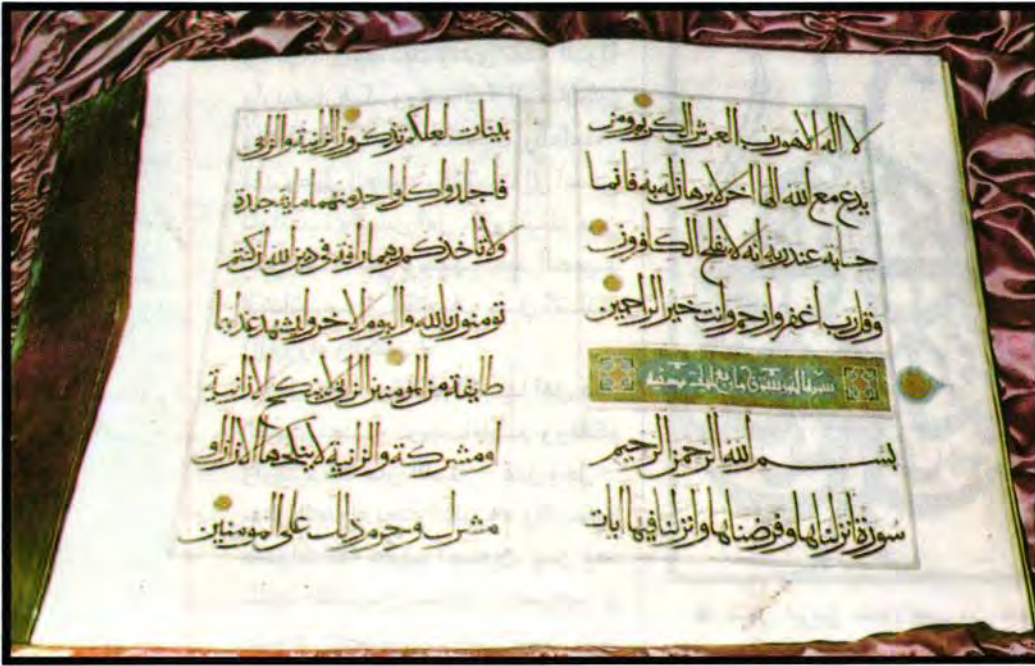 لا اله الا هو رب العرش الكريم ومن
يدع مع الله الها اخر لا برهان له به فانما
حسابه عند ربه انه لا يفلح الكافرون
وقل رب اغفر وارحم وانت خير الراحمين
سورة النور ستون واربع ايات
بســـم الله الرحمن الرحيم
سورة انزلناها وفرضناها وانزلنا فيها ايات
بينات لعلكم تذكرون الزانية والزاني
فاجلدوا كل واحد منهما ماية جلدة
ولا تاخذكم بهما رافة في دين الله ان كنتم
تومنون بالله واليوم الاخر وليشهد عذابهما
طايفة من المومنين الزاني لا ينكح الا زانية
او مشركة والزانية لا ينكحها الا زان او
مشرك وحرم ذلك على المومنين